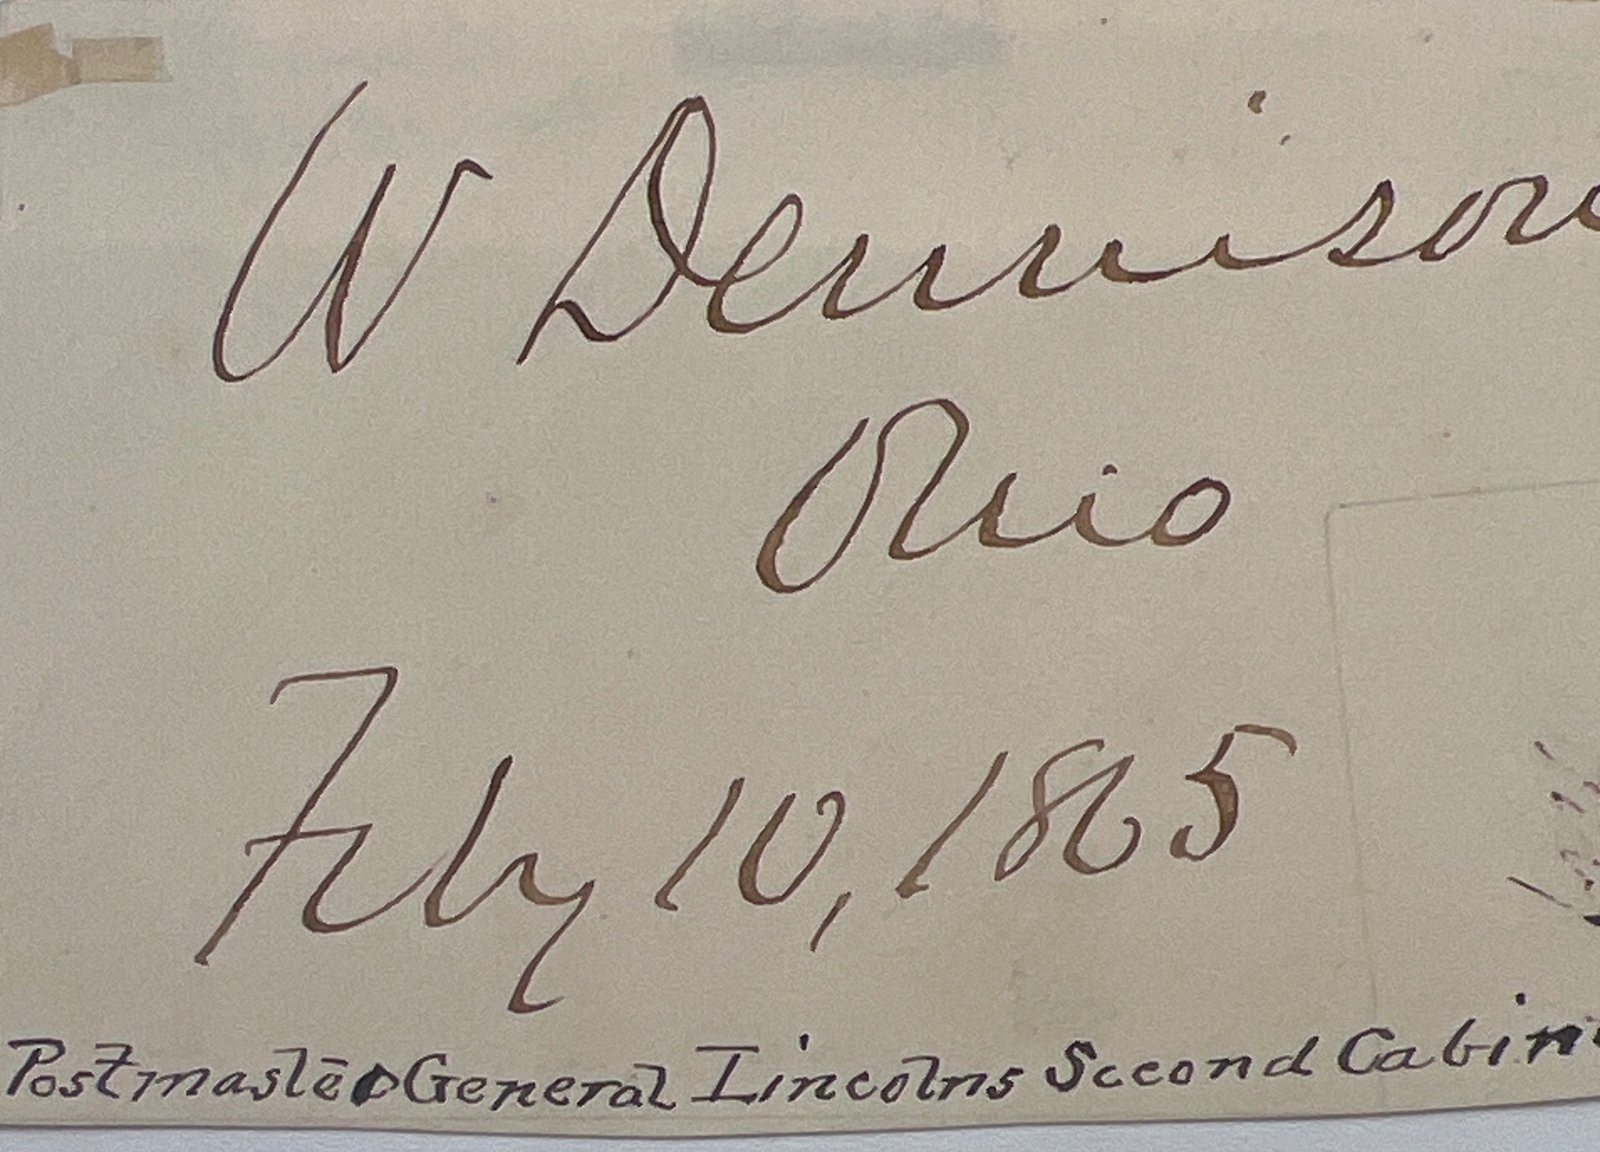 W Dennison
Ohio
Feby 10, 1865
Postmaster General Lincolns Second Cabin